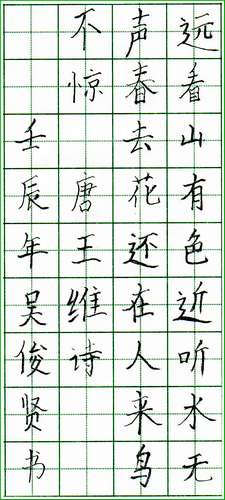 远看山有色近听水无
声春去花还在人来鸟
不惊 唐王维诗
壬辰年吴俊贤书